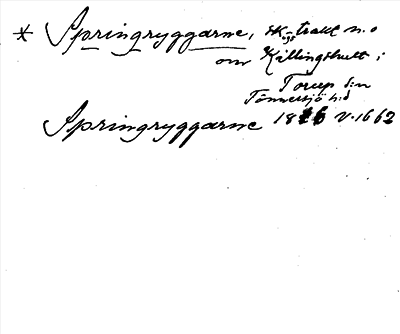 * Springryggarne, trakt n.o
om Källingshult i
Torup s:n
Tönnersjö h:d
Springryggarne 18 V. 1662